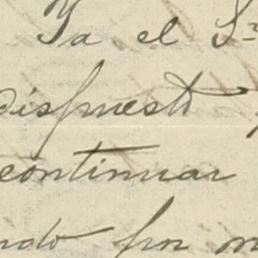 Ya el Sr
dispuesto
continuar
ndo por m